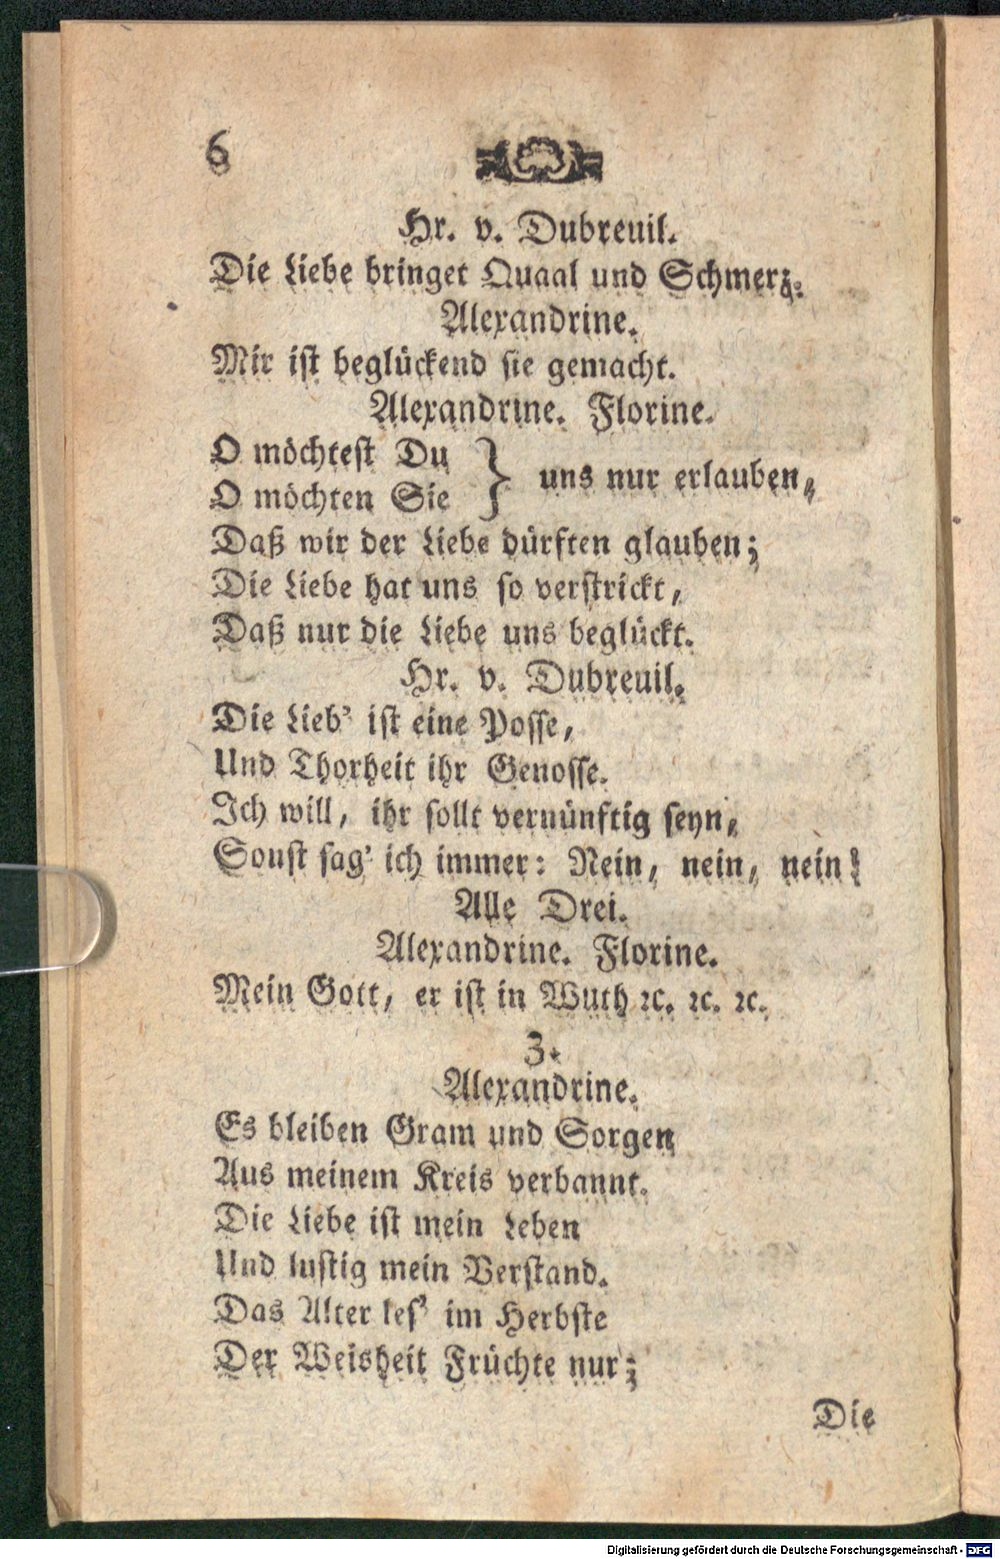 6
Hr. v. Dubreuil.
Die Liebe bringet Quaal und Schmerz.
Alexandrine.
Mir ist beglückend sie gemacht.
Alexandrine. Florine.
O möchtest Du
O möchten Sie } uns nur erlauben,
Daß wir der Liebe dürften glauben;
Die Liebe hat uns so verstrickt,
Daß nur die Liebe uns beglückt.
Hr. v. Dubreuil.
Die Lieb' ist eine Posse,
Und Thorheit ihr Genosse.
Ich will, ihr sollt vernünftig seyn,
Sonst sag' ich immer: Nein, nein, nein!
Alle Drei.
Alexandrine. Florine.
Mein Gott, er ist in Wuth ꝛc. ꝛc. ꝛc.
3.
Alexandrine.
Es bleiben Gram und Sorgen
Aus meinem Kreis verbannt.
Die Liebe ist mein Leben
Und lustig mein Verstand.
Das Alter les' im Herbste
Der Weisheit Früchte nur;
Die
Digitalisierung gefördert durch die Deutsche Forschungsgemeinschaft - DFG